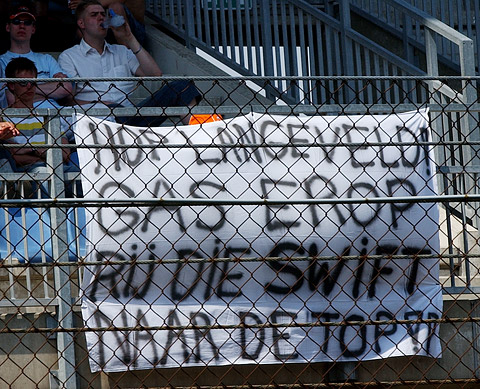 HUP LANGEVELD!
GAS EROP
RIJ DIE SWIFT
NAAR DE TOP!!